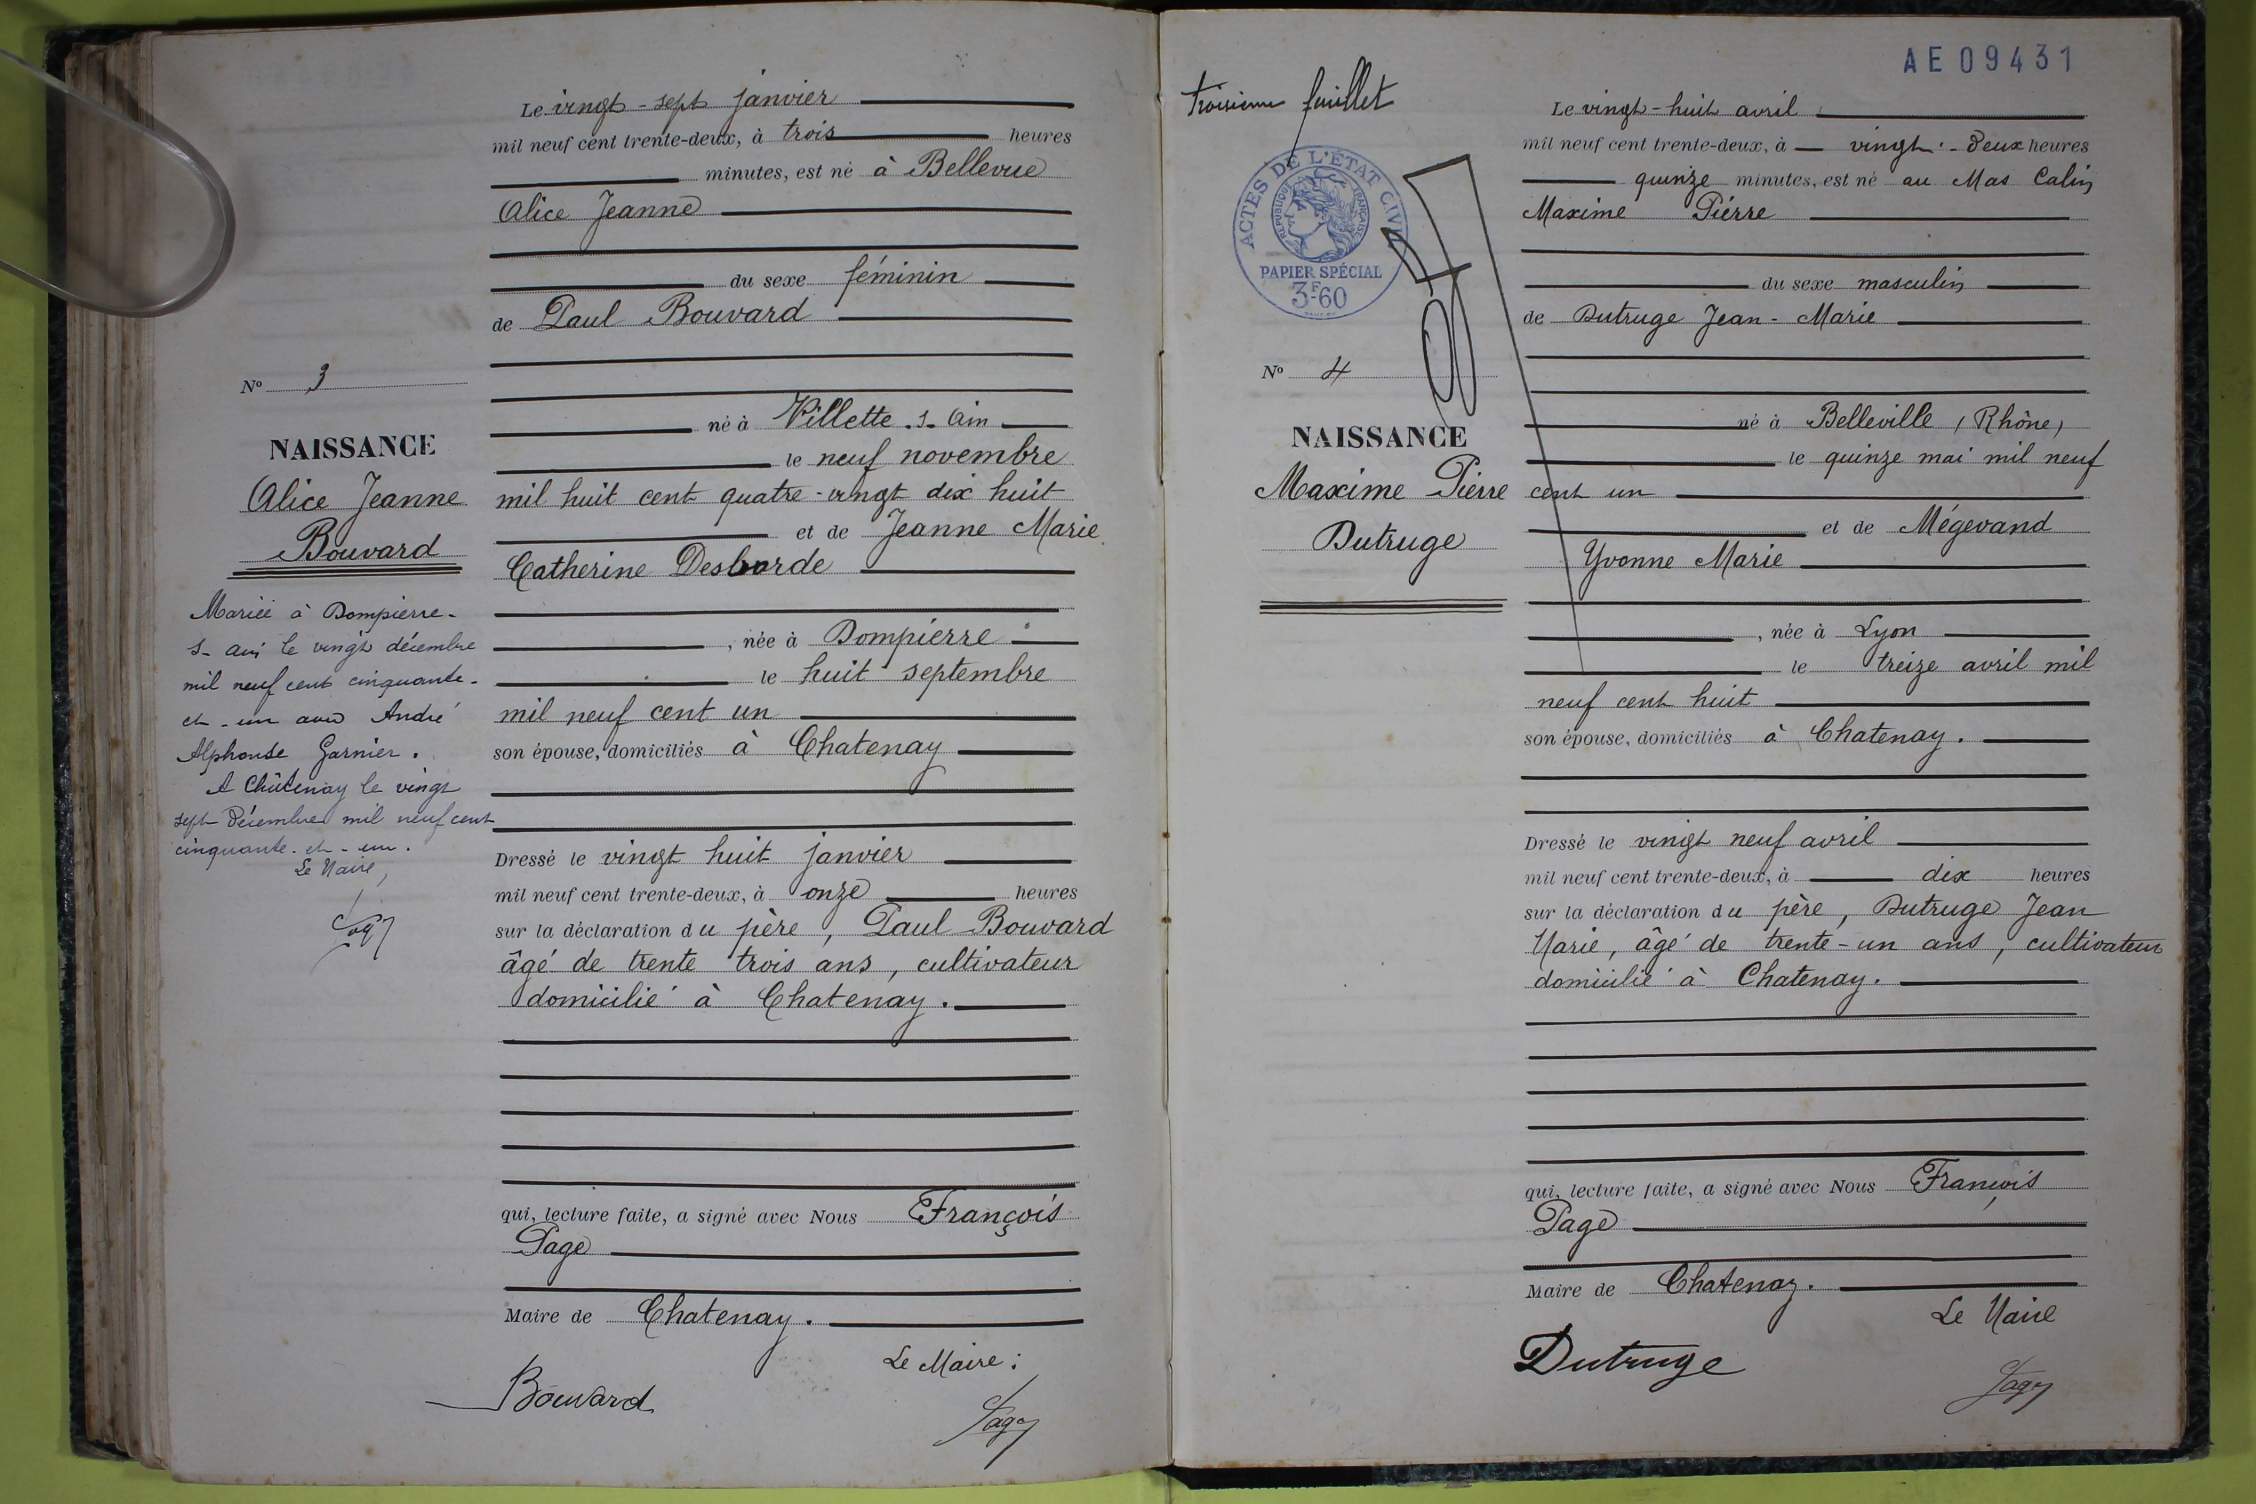 Le vingt-sept janvier
mil neuf cent trente-deux, à trois heures
minutes, est né à Bellevue
Alice Jeanne
du sexe féminin
de Paul Bouvard
né à Villette-s-Ain
le neuf novembre
mil huit cent quatre-vingt dix huit
et de Jeanne Marie
Catherine Desborde
, née à Dompierre
le huit septembre
mil neuf cent un
son épouse, domiciliés à Chatenay
Dressé le vingt huit janvier
mil neuf cent trente-deux, à onze heures
sur la déclaration du père, Paul Bouvard
âgé de trente trois ans, cultivateur
domicilié à Chatenay.
qui, lecture faite, a signé avec Nous François
Page
Maire de Chatenay.
Le Maire :
Bouvard
Page
No 3
NAISSANCE
Alice Jeanne
Bouvard
Mariée à Dompierre-
s-ain le vingt décembre
mil neuf cent cinquante-
et-un avec André
Alphonse Garnier.
A Châtenay le vingt
sept décembre mil neuf cent
cinquante-et-un.
Le Maire,
Page
AE09431
troisième feuillet
ACTES DE L'ÉTAT CIVIL
RÉPUBLIQUE FRANÇAISE
PAPIER SPÉCIAL
3F60
No 4
NAISSANCE
Maxime Pierre
Dutruge
Le vingt-huit avril
mil neuf cent trente-deux, à vingt-deux heures
quinze minutes, est né au Mas Calin
Maxime Pierre
du sexe masculin
de Dutruge Jean-Marie
né à Belleville (Rhône)
le quinze mai mil neuf
cent un
et de Mégevand
Yvonne Marie
, née à Lyon
le treize avril mil
neuf cent huit
son épouse, domiciliés à Chatenay.
Dressé le vingt neuf avril
mil neuf cent trente-deux, à dix heures
sur la déclaration du père, Dutruge Jean
Marie, âgé de trente-un ans, cultivateur
domicilié à Chatenay.
qui, lecture faite, a signé avec Nous François
Page
Maire de Chatenay.
Le Maire
Dutruge
Page